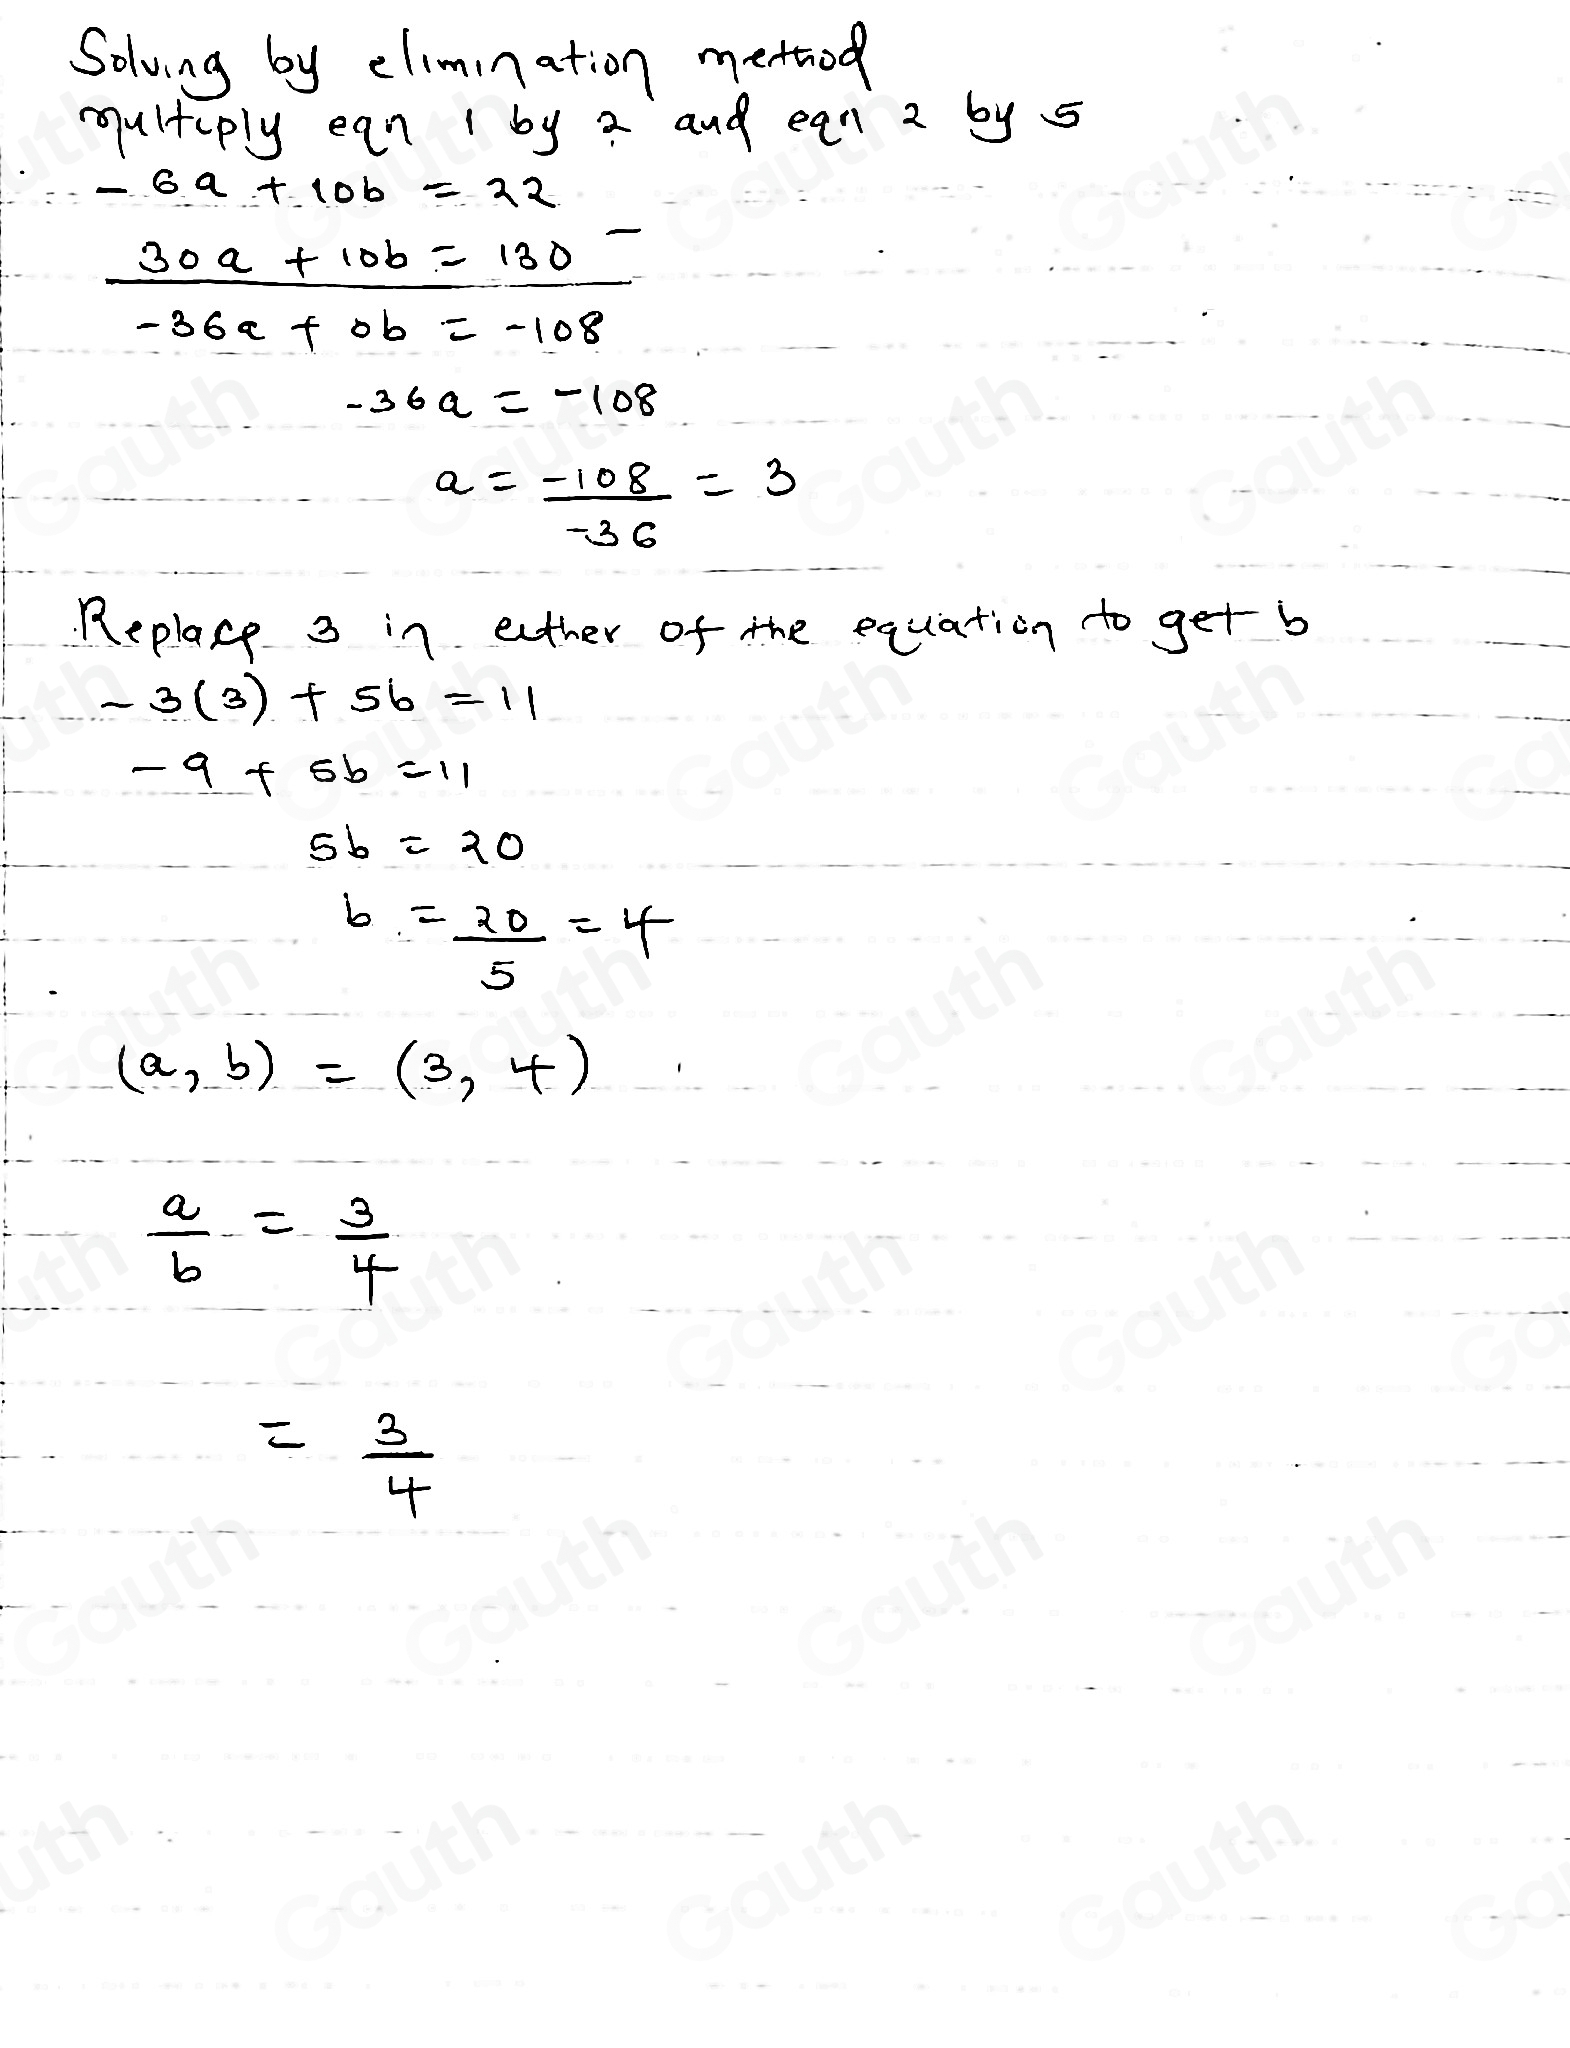 Solving by elimination method
multiply eqn 1 by 2 and eqn 2 by 5
- 6a + 10b = 22
30a + 10b = 130 -
-36a + 0b = -108
-36a = -108
a = -108/-36 = 3
Replace 3 in either of the equation to get b
- 3(3) + 5b = 11
- 9 + 5b = 11
5b = 20
b = 20/5 = 4
(a, b) = (3, 4)
a/b = 3/4
= 3/4